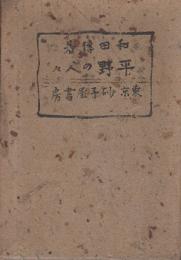 和田傳著
平野の人々
東京 砂子屋書房